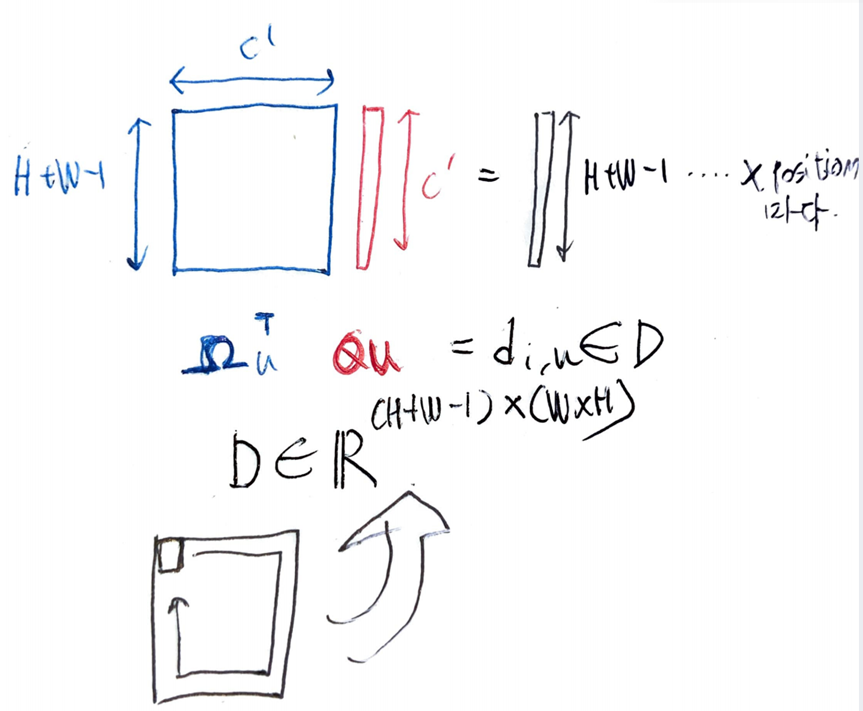 C'
H+W-1
C'
=
H+W-1 .... x position
마다.
Ω_u^T Q_u = d_{i,u} ∈ D
D ∈ ℝ^{(H+W-1)×(W×H)}